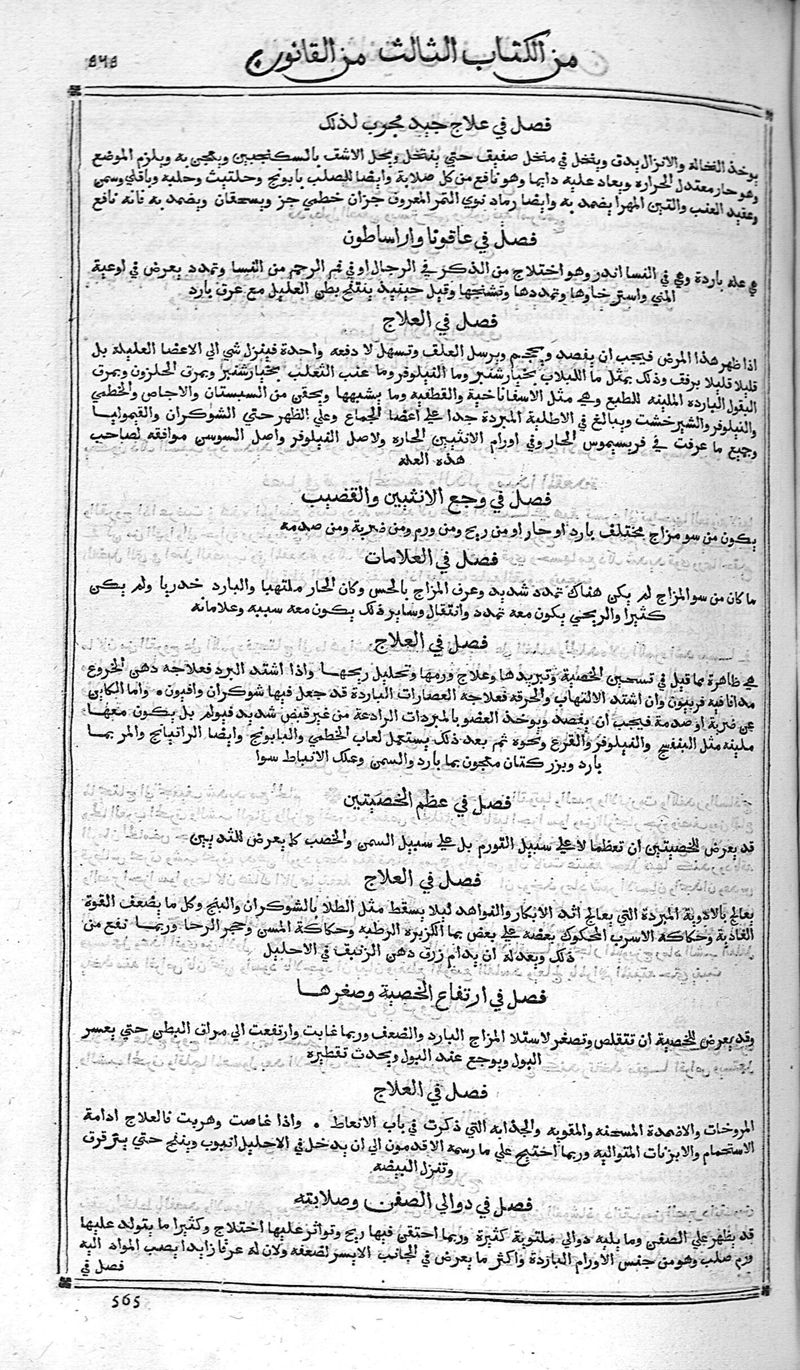 من الكتاب الثالث من القانون ٥٦٥
فصل في علاج جيد مجرب لذلك
يوخذ النخاله والانزال يدق وينخل في منخل صفيق حتي ينتخل ويحل الاشف بالسكنجبين ويعجن به ويلزم الموضع
وهو حار معتدل الحراره ويعاد عليه دايما وهو نافع من كل صلابة وايضا للصلب بابونج وحلتيث وحلبه وباقلي وسمن
وعقيد العنب والتين المهرا يضمد به وايضا رماد نوي التمر المعروف جزان خطمي جز ويسحقان ويضمد به فانه نافع
فصل في عاقونا واراساطون
هي عله باردة وهي في النسا اندر وهو اختلاج من الذكر في الرجال او في فم الرحم من النسا وتمدد يعرض في اوعية
المني واسترخاوها وتمددها وتشنجها وقيل حينيذ ينتفخ بطن العليل مع عرق بارد
فصل في العلاج
اذا ظهر هذا المرض فيجب ان يفصد ويحجم ويرسل العلف وتسهل لا دفعه واحدة فينزل شي الي الاعضا العليلة بل
قليلا قليلا برفف وذلك بمثل ما اللبلاب بخيارشنبر وما النيلوفر وما عنب الثعلب بخيارشنبر وبمرق الحلزون وبمرق
البقول البارده الملينه للطبع وهي مثل الاسفاناخية والقطفيه وما يشبهها ويحقن من السبستان والاجاص والخطمي
والنيلوفر والشيرخشت ويبالغ في الاطلية المبردة جدا علي اعضا الجماع وعلي الظهر حتي الشوكران والقيموليا
وجميع ما عرفت في فريسيموس الحار وفي اورام الانثيين الحاره ولاصل النيلوفر واصل السوسن موافقه لصاحب
هذه العله
فصل في وجع الانثيين والقضيب
يكون من سو مزاج مختلف بارد او حار او من ريح ومن ورم ومن ضربة ومن صدمه
فصل في العلامات
ما كان من سو المزاج لم يكن هناك تمدد شديد وعرف المزاج بالحس وكان الحار ملتهبا والبارد خدريا ولم يكن
كثيرا والريحي يكون معه تمدد وانتقال وساير ذلك يكون معه سببه وعلاماته
فصل في العلاج
هي ظاهرة مما قيل في تسخين الخصية وتبريدها وعلاج ورمها وتحليل ريحها واذا اشتد البرد فعلاجه دهن الخروع
مدافا فيه فربيون وان اشتد الالتهاب والحرقه فعلاجه العصارات الباردة قد جعل فيها شوكران وافيون واما الكاين
عن ضربة او صدمة فيجب ان يفصد ويوخذ العضو بالمبردات الرادعة من غير قبض شديد فيولم بل يكون معها
ملينه مثل البنفسج والنيلوفر والقرع ونحوه ثم بعد ذلك يستعمل لعاب الخطمي والبابونج وايضا الراتيانج والمر بما
بارد وبزر كتان معجون بما بارد والسمن وعلك الانباط سوا
فصل في عظم الخصيتين
قد يعرض للخصيتين ان تعظما لا علي سبيل التورم بل علي سبيل السمن والخصب كما يعرض للثديين
فصل في العلاج
يعالج بالادوية المبردة التي يعالج اثد الابكار والنواهد ليلا يسقط مثل الطلا بالشوكران والبنج وكل ما يضعف القوة
الغاذية وحكاكة الاسرب المحكوك بعضه علي بعض بما الكزبره الرطبه وحكاكة المسن وحجر الرحا وربما نفع من
ذلك وبعد له ان يدام زرق دهن الزنبق في الاحليل
فصل في ارتفاع الخصية وصغرها
وقد يعرض للخصية ان تتقلص وتصغر لاستلا المزاج البارد والضعف وربما غابت وارتفعت الي مراق البطن حتي يعسر
البول ويوجع عند البول ويحدث تقطيره
فصل في العلاج
المروخات والاضمدة المسخنه والمقويه والجذابه التي ذكرت في باب الانعاظ واذا غاصت وهربت فالعلاج ادامة
الاستحمام والابزنات المتواليه وربما احتيج علي ما رسمه الاقدمون الي ان يدخل في الاحليل انبوب وينفخ حتي يترقرق
وتنزل البيضه
فصل في دوالي الصفن وصلابته
قد يظهر علي الصفن وما يليه دوالي ملتوية كثيرة وربما احتقن فيها ريح وتواتر عليها اختلاج وكثيرا ما يتولد عليها
ورم صلب وهو من جنس الاورام الباردة واكثر ما يعرض في الجانب الايسر لضعفه ولان له عرقا زايدا يصب المواد اليه
فصل في
565